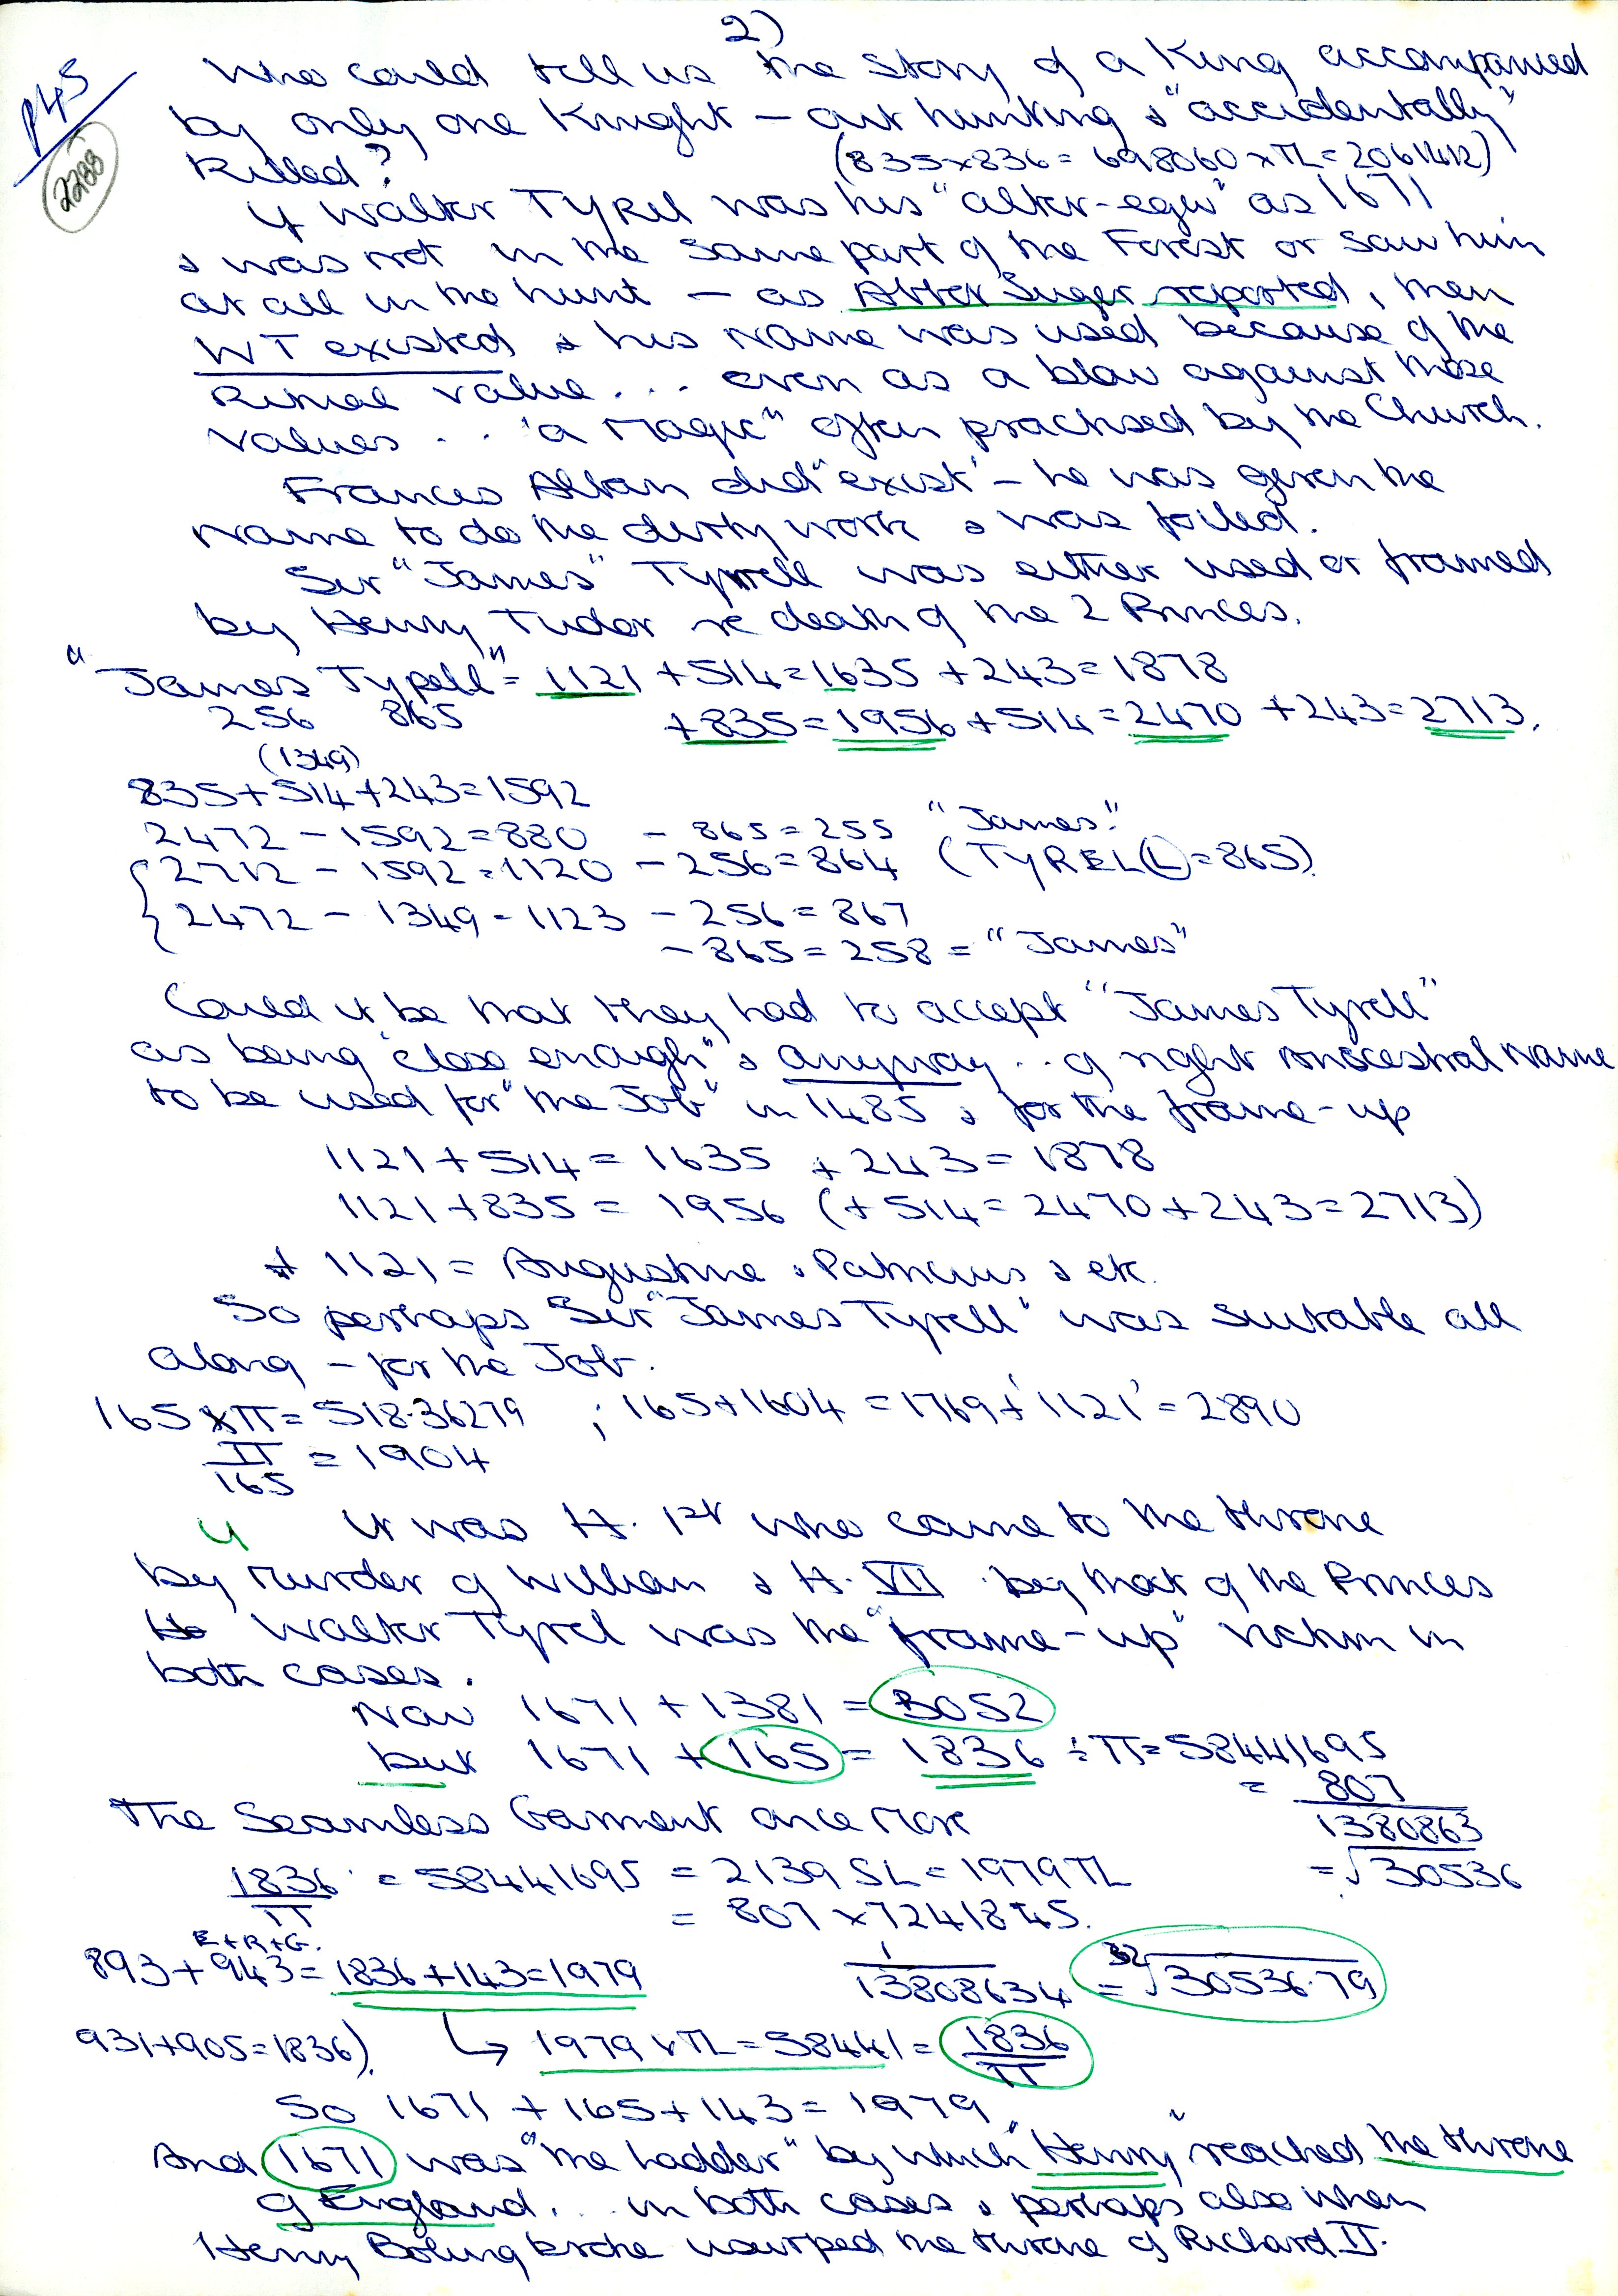 2)
p45
2288
Who could tell us the story of a King accompanied
by only one Knight – out hunting & "accidentally"
Killed?
(835x836=698060xTL=2061412)
If Walter TYREL was his "alter-ego" as 1671
& was not in the same part of the Forest or saw him
at all in the hunt – as Abbot Suger reported, then
WT existed & his name was used because of the
Ritual value... even as a blow against those
values... 'a Magic" often practised by the Church.
Frances Alban did "exist" – he was given the
name to do the dirty work & was foiled.
Sir "James" Tyrrell was either used or framed
by Henry Tudor re death of the 2 Princes.
"James Tyrell" = 1121 +514=1635 +243=1878
256 865 +835=1956+514=2470 +243=2713.
(1349)
835+514+243=1592
2472 – 1592=880 – 865=255 "James."
2712 – 1592=1120 – 256=864 (TYREL(L)=865).
2472 – 1349=1123 – 256=867
– 865=258= "James"
Could it be that they had to accept "James Tyrell"
as being "close enough" & anyway... of right Ancestral name
to be used for "the Job" in 1485 & for the frame-up
1121+514= 1635 +243=1878
1121+835= 1956 (+514=2470+243=2713)
+ 1121= Augustine & Patricius & etc.
So perhaps Sir "James Tyrell" was suitable all
along – for the Job.
165 x π=518.36279 ; 165+1604=1769+'1121'=2890
π/165 = 1904
It was H. 1st who came to the throne
by murder of William & H. VII by that of the Princes
Walter Tyrel was the "frame-up" victim in
both cases.
Now 1671 + 1381 = 3052
but 1671 + 165 = 1836 ÷π=58441695
= 807/1380863
The Seamless Garment once more
1836/π = 58441695 = 2139 SL=1979TL =√30536
= 807 x 7241845.
E+R+G.
893+943=1836+143=1979 1/13808634 = 32√30536.79
931+905=1836) ↳ 1979 x TL=58441= 1836/π
So 1671 + 165+143= 1979
And 1671 was "the ladder" by which "Henry" reached the throne
of England... in both cases & perhaps also when
Henry Boling broke usurped the throne of Richard II.